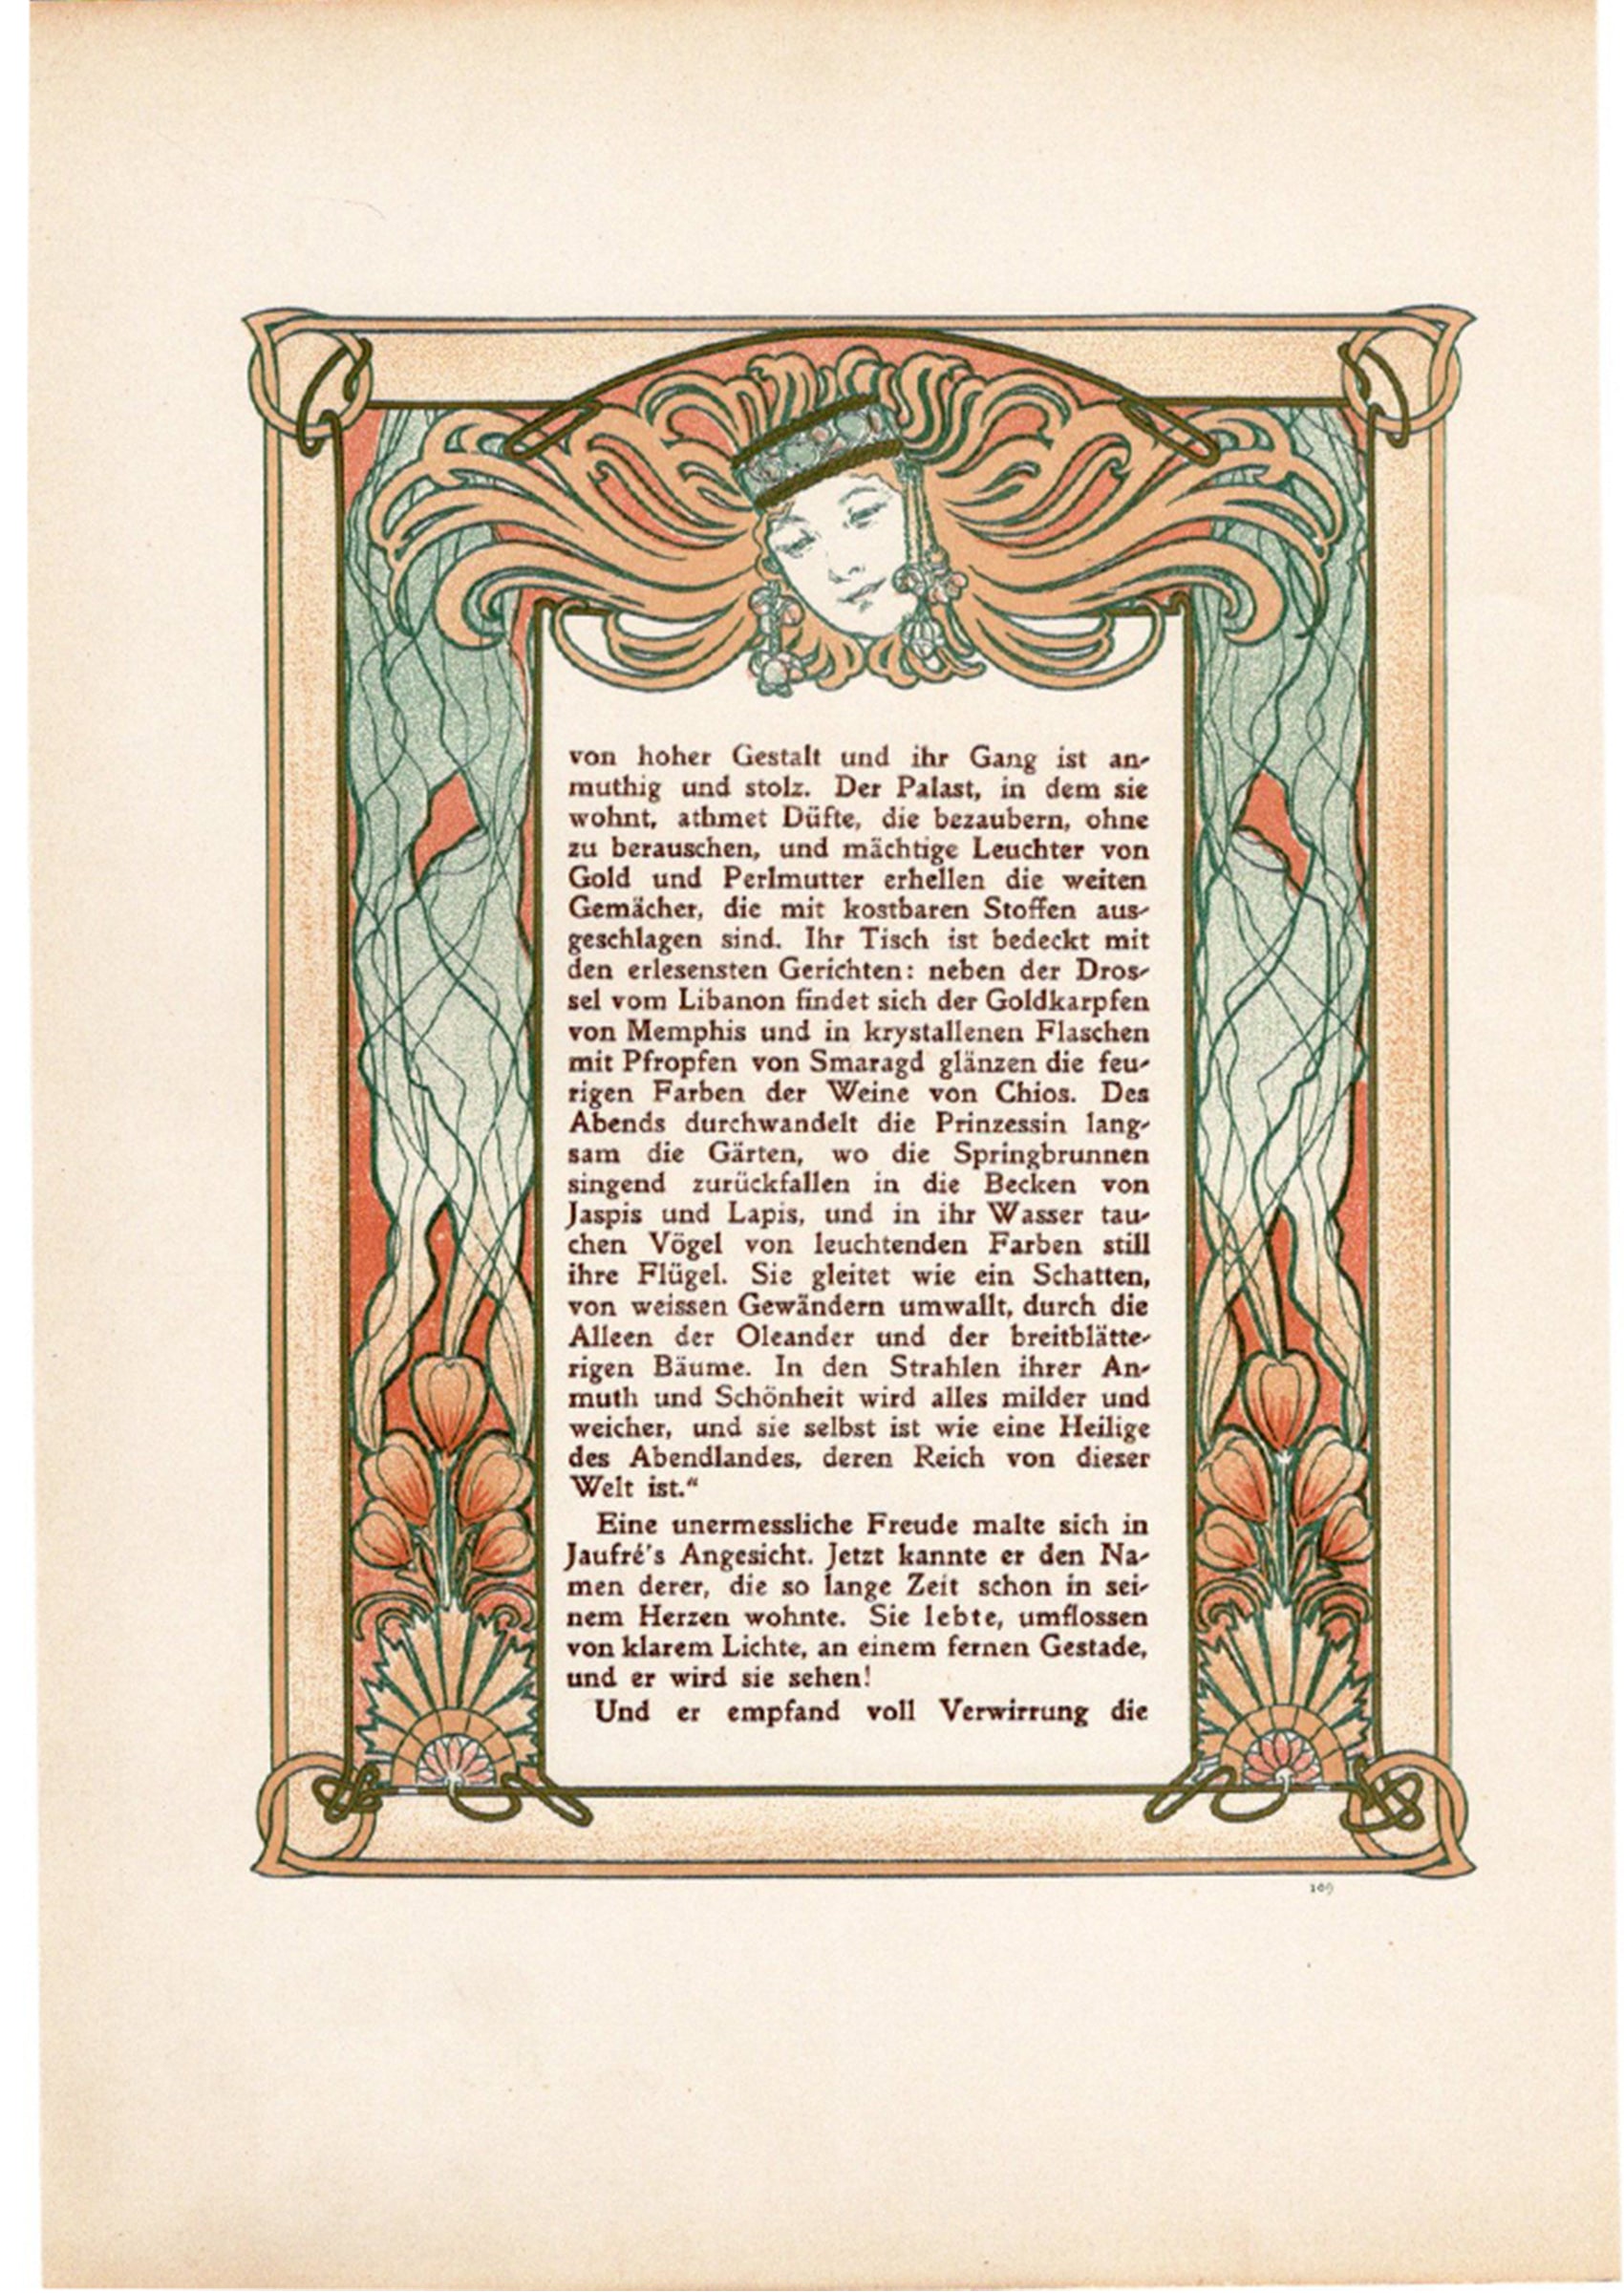 von hoher Gestalt und ihr Gang ist an-
muthig und stolz. Der Palast, in dem sie
wohnt, athmet Düfte, die bezaubern, ohne
zu berauschen, und mächtige Leuchter von
Gold und Perlmutter erhellen die weiten
Gemächer, die mit kostbaren Stoffen aus-
geschlagen sind. Ihr Tisch ist bedeckt mit
den erlesensten Gerichten: neben der Dros-
sel vom Libanon findet sich der Goldkarpfen
von Memphis und in krystallenen Flaschen
mit Pfropfen von Smaragd glänzen die feu-
rigen Farben der Weine von Chios. Des
Abends durchwandelt die Prinzessin lang-
sam die Gärten, wo die Springbrunnen
singend zurückfallen in die Becken von
Jaspis und Lapis, und in ihr Wasser tau-
chen Vögel von leuchtenden Farben still
ihre Flügel. Sie gleitet wie ein Schatten,
von weissen Gewändern umwallt, durch die
Alleen der Oleander und der breitblätte-
rigen Bäume. In den Strahlen ihrer An-
muth und Schönheit wird alles milder und
weicher, und sie selbst ist wie eine Heilige
des Abendlandes, deren Reich von dieser
Welt ist.“
Eine unermessliche Freude malte sich in
Jaufré's Angesicht. Jetzt kannte er den Na-
men derer, die so lange Zeit schon in sei-
nem Herzen wohnte. Sie lebte, umflossen
von klarem Lichte, an einem fernen Gestade,
und er wird sie sehen!
Und er empfand voll Verwirrung die
109